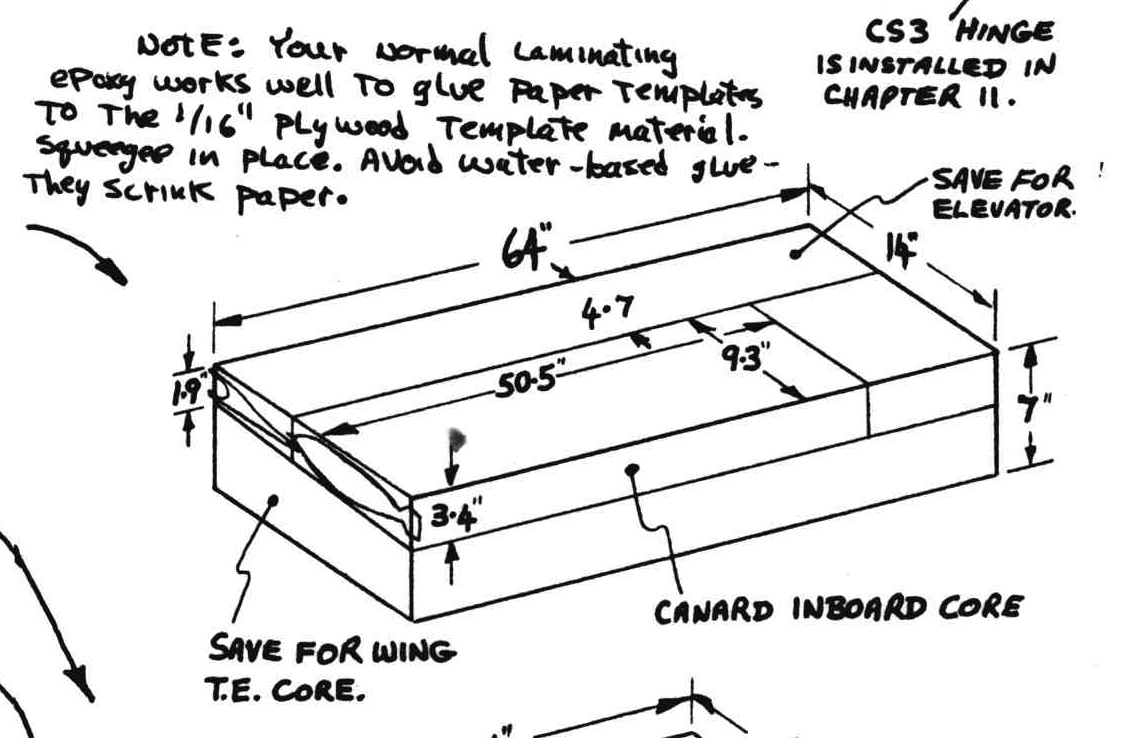 NOTE: Your normal Laminating
epoxy works well To glue paper Templates
To The 1/16" plywood Template material.
Squeegee in place. Avoid water-based glue-
They scrink paper.
CS3 HINGE
IS INSTALLED IN
CHAPTER 11.
SAVE FOR
ELEVATOR.
64"
14"
4.7
1.9"
50.5"
9.3"
7"
3.4"
CANARD INBOARD CORE
SAVE FOR WING
T.E. CORE.